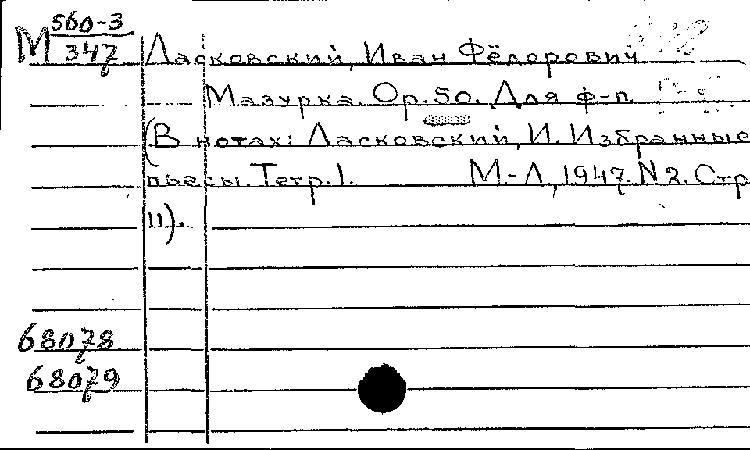 М 560-3
347
Ласковский, Иван Фёдорович
Мазурка. Ор. 50. Для ф-п.
(В нотах: Ласковский, И. Избранные
пьесы. Тетр. 1. М.-Л, 1947. N 2. Стр
11).
68078
68079